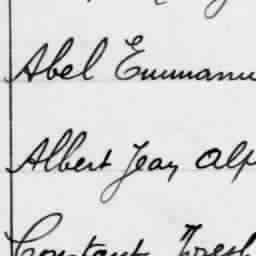 Abel Emmanu
Albert Jean Alp
Constant